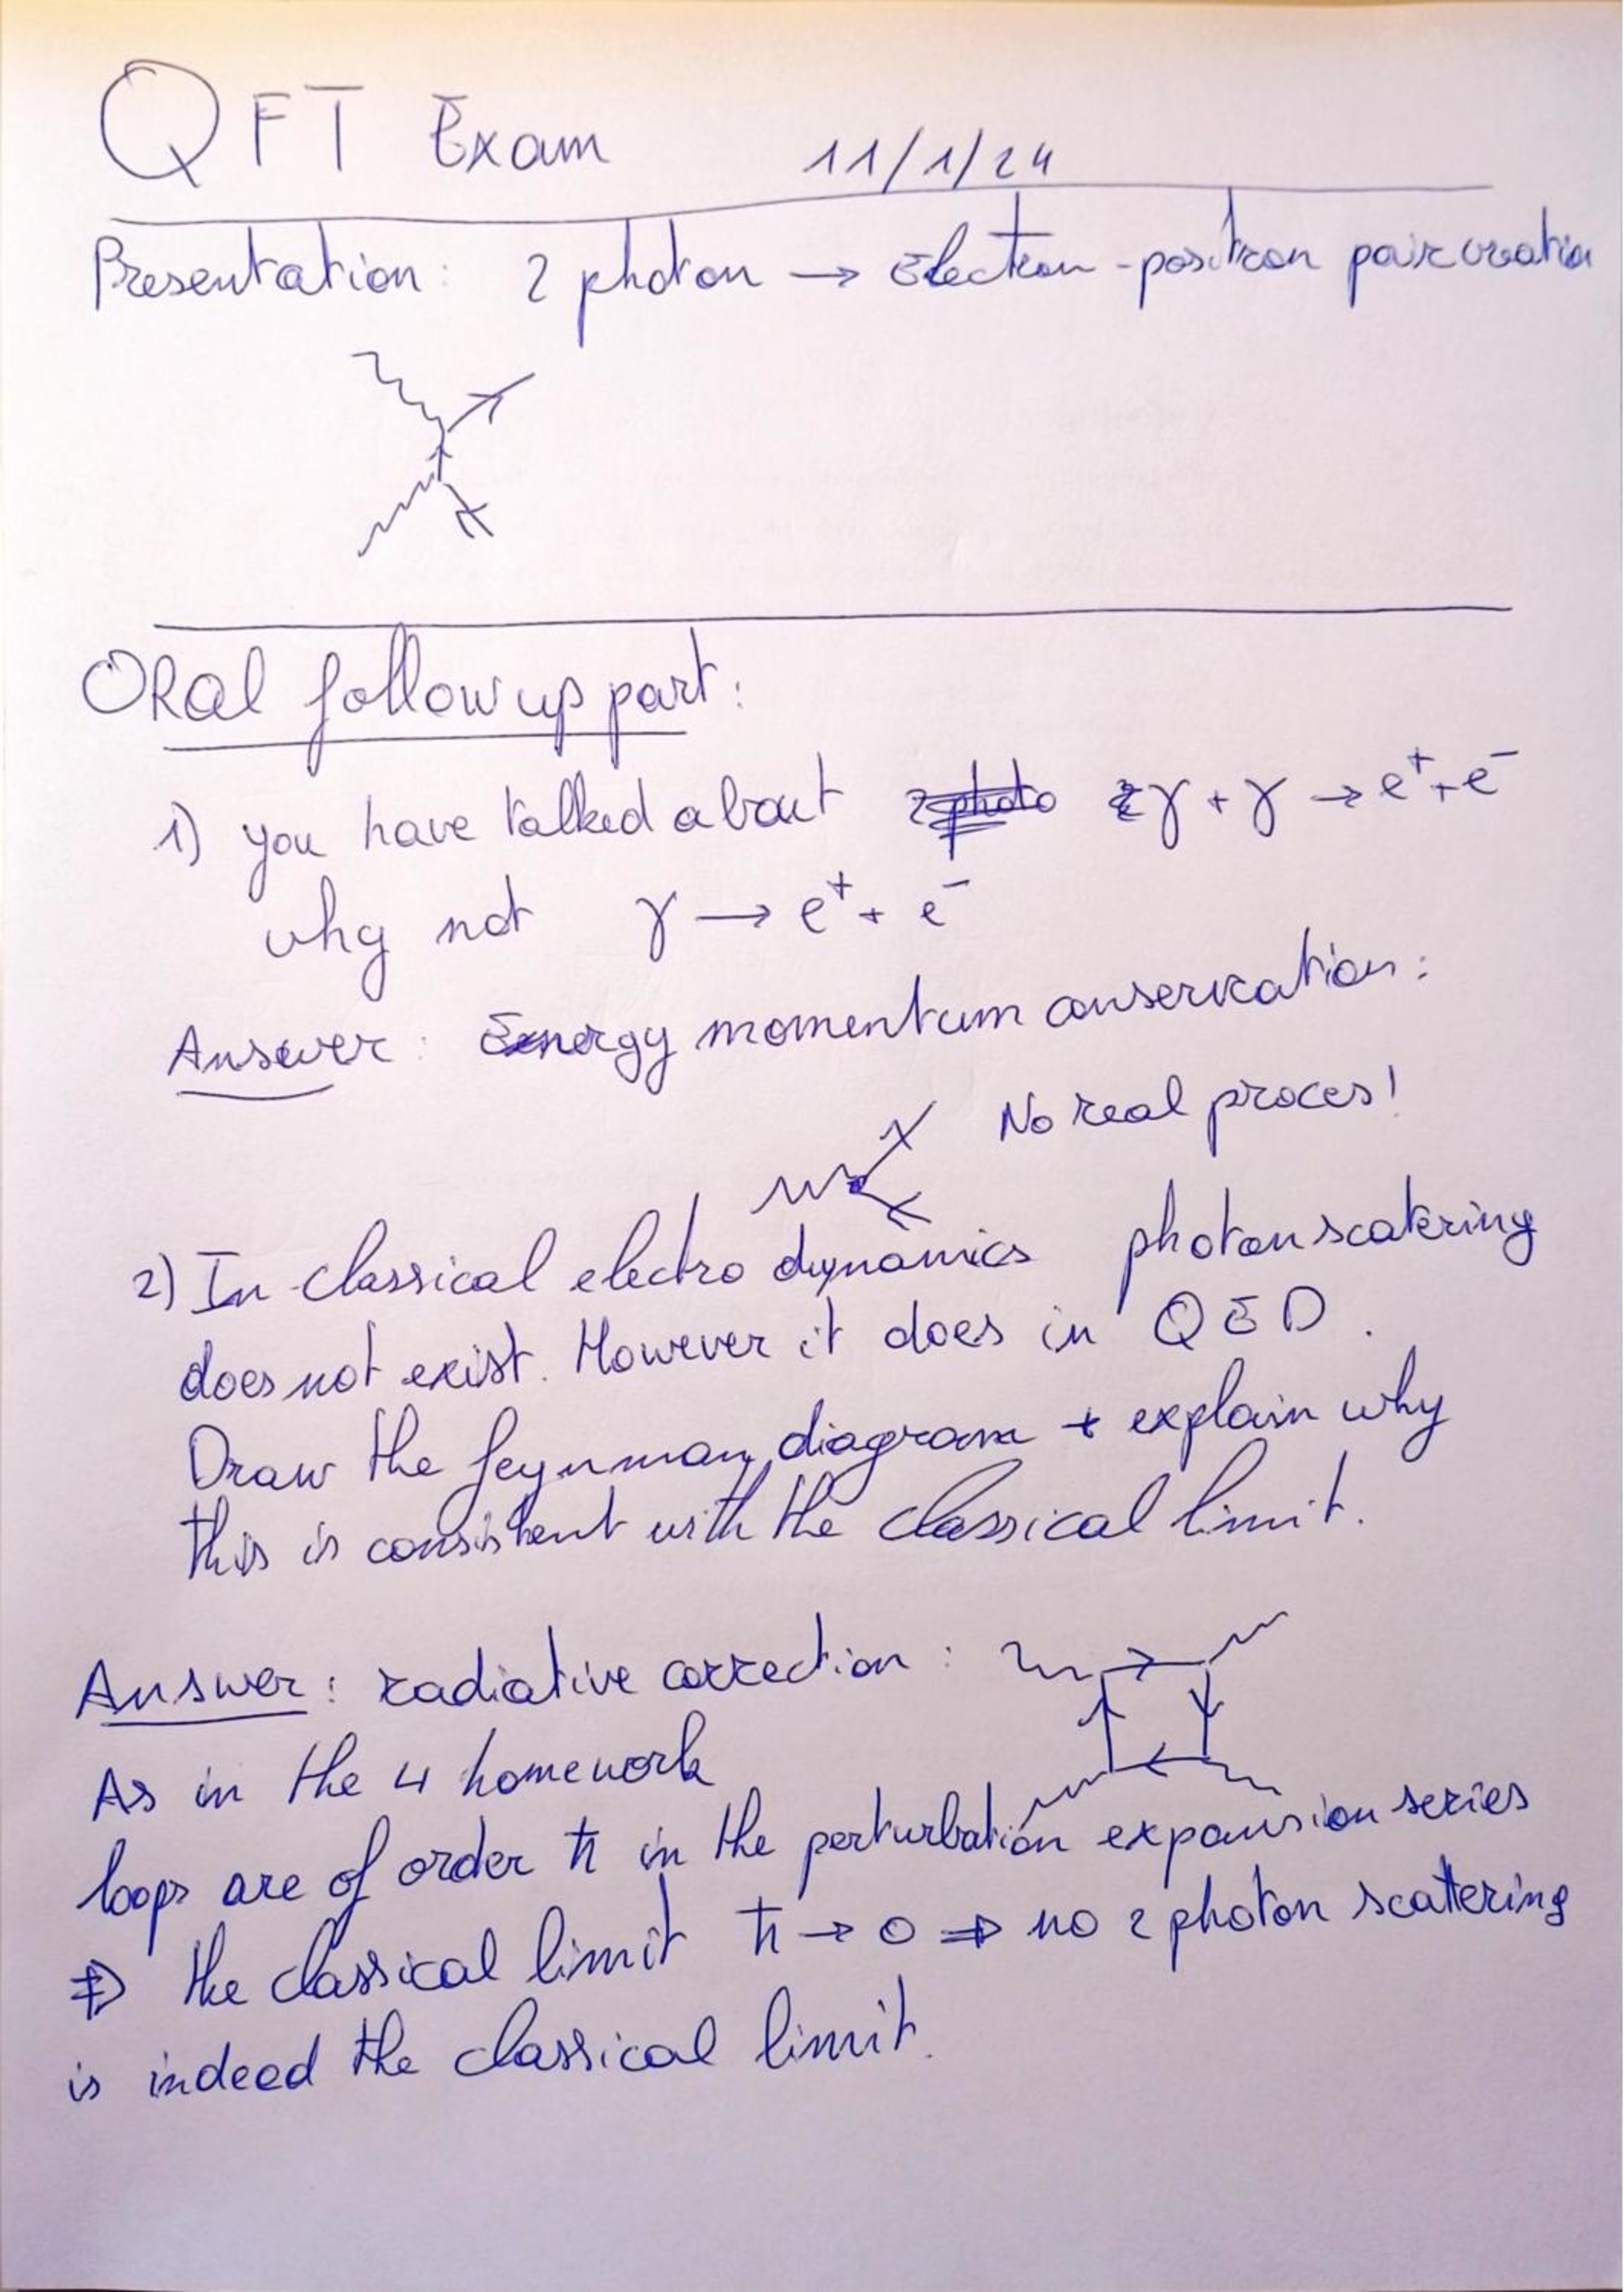 QFT Exam 11/1/24
Presentation: 2 photon → Electron-positron pair creation
Oral follow up part:
1) you have talked about 2 photo γ + γ → e⁺ + e⁻
why not γ → e⁺ + e⁻
Answer: Energy momentum conservation:
No real proces!
2) In classical electro dynamics photon scatering
does not exist. However it does in QED.
Draw the feynman diagram + explain why
this is consistent with the classical limit.
Answer: radiative correction:
As in the 4 homework
loops are of order ħ in the perturbation expansion series
⇒ the classical limit ħ → 0 ⇒ no 2 photon scattering
is indeed the classical limit.